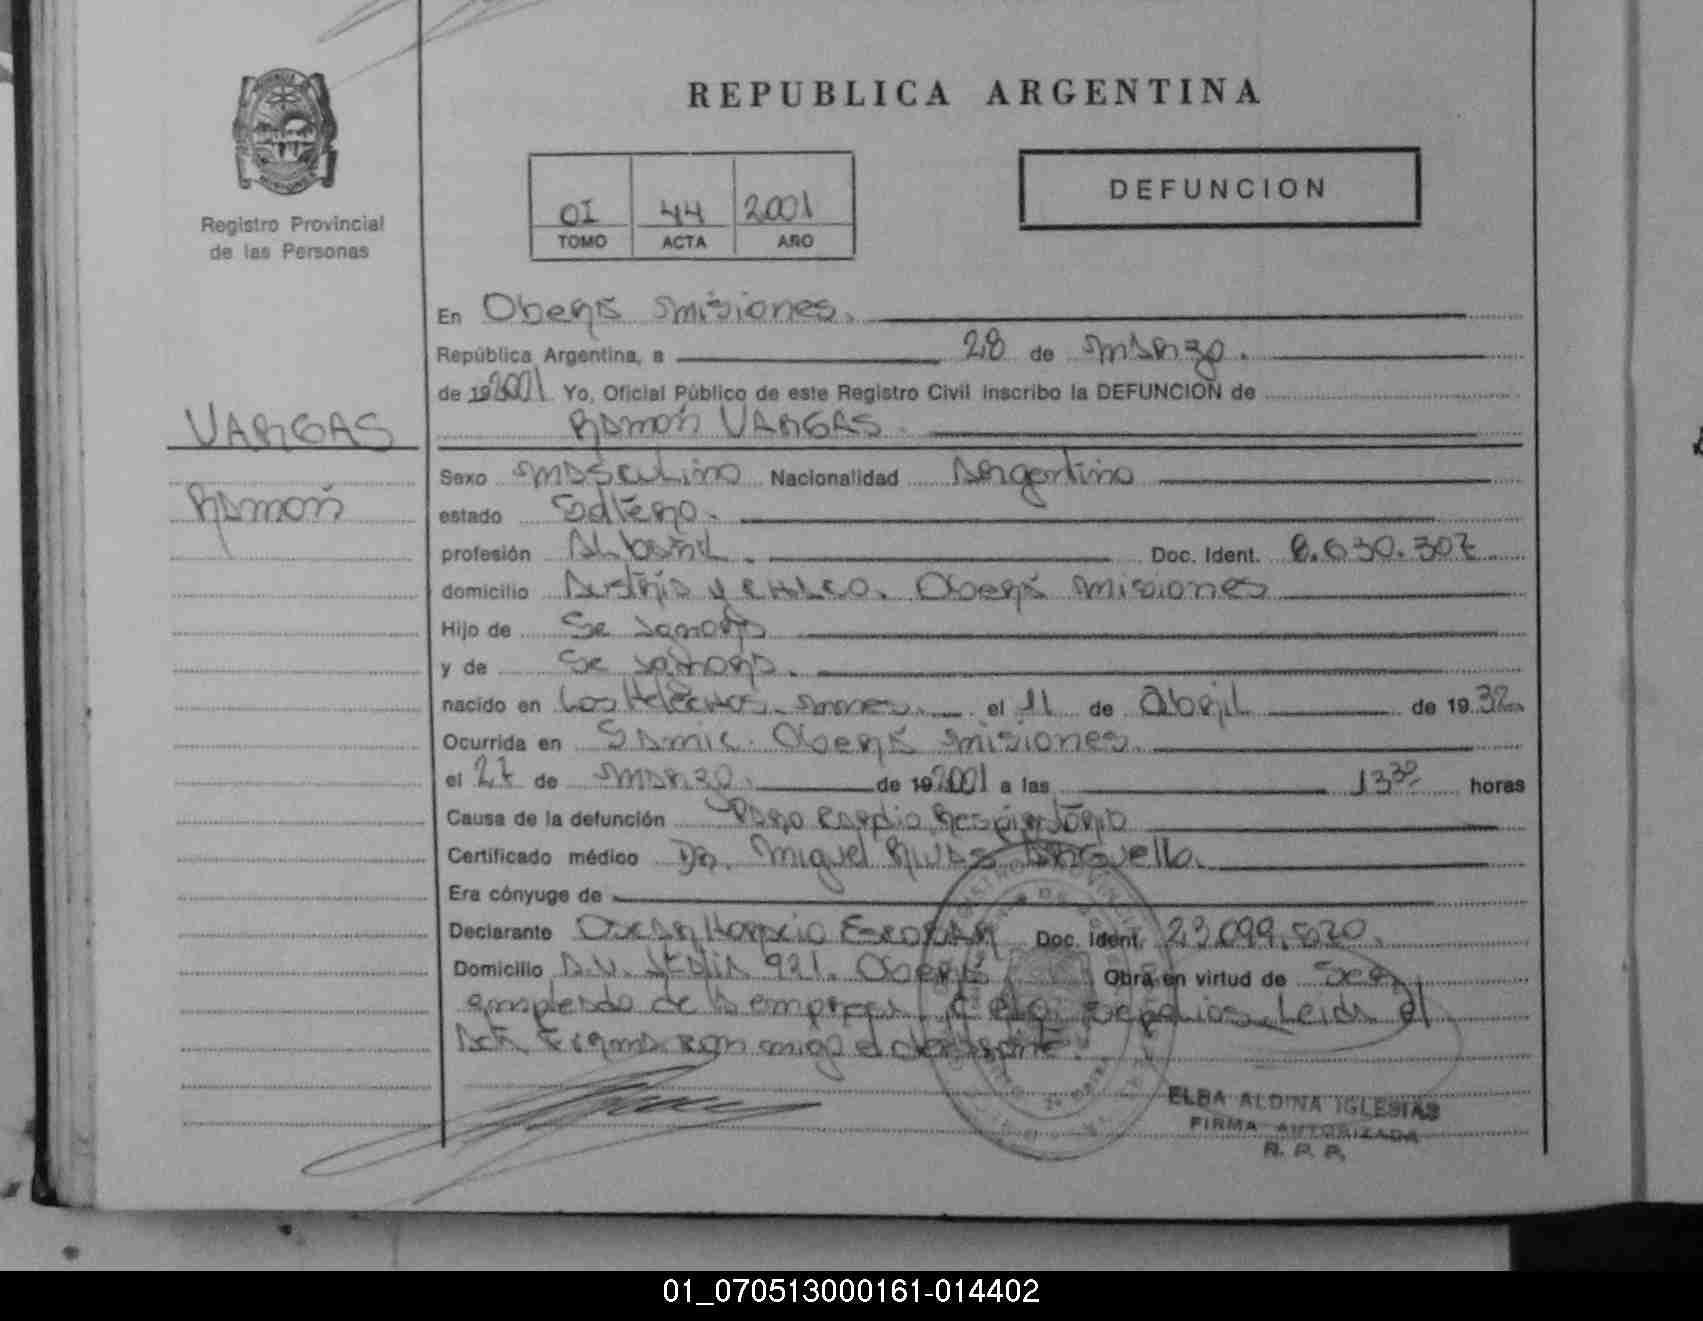 REPUBLICA ARGENTINA
DEFUNCION
01 44 2001
TOMO ACTA AÑO
Registro Provincial
de las Personas
En Oberá Misiones.
República Argentina, a 28 de Marzo.
de 192001 Yo, Oficial Público de este Registro Civil inscribo la DEFUNCION de
VARGAS
Ramón VARGAS.
Ramón
Sexo Masculino Nacionalidad Argentino
estado Soltero.
profesión Albañil. Doc. Ident. 8.630.307
domicilio Austria y Chile. Oberá Misiones
Hijo de Se ignora
y de Se ignora.
nacido en Los Helechos. Mnes. el 11 de Abril de 1932.
Ocurrida en Samic. Oberá Misiones.
el 27 de Marzo. de 192001 a las 13 30 horas
Causa de la defunción Paro Cardio Respiratorio
Certificado médico Dr. Miguel Rivas
Era cónyuge de
Declarante Oscar Horacio Escobar Doc. Ident. 23.099.520.
Domicilio 921. Oberá Obra en virtud de Ser
empleado de la empresa Sepelios. Leida el
Acta Firma con migo el declarante.
ELBA ALDINA IGLESIAS
FIRMA AUTORIZADA
R. P. P.
01_070513000161-014402